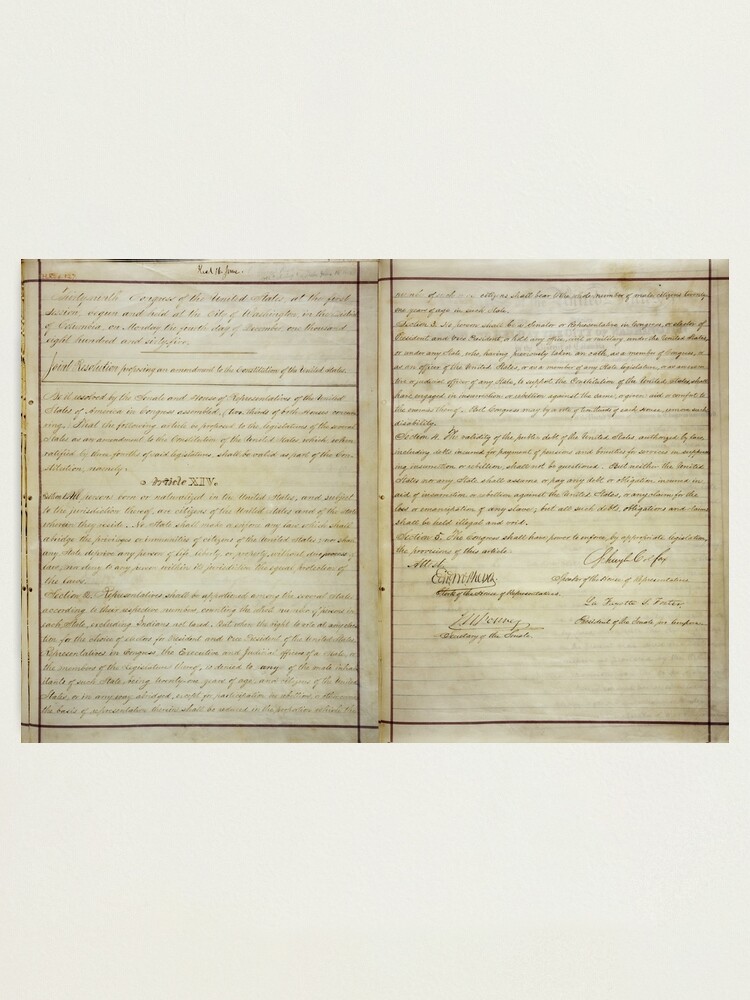 Thirty-ninth Congress of the United States, at the first
session, begun and held at the City of Washington, in the District
of Columbia, on Monday the fourth day of December, one thousand
eight hundred and sixty-five.
Joint Resolution proposing an amendment to the Constitution of the United States.
Be it resolved by the Senate and House of Representatives of the United
States of America in Congress assembled, (two thirds of both Houses concur-
ring,) That the following article be proposed to the legislatures of the several
States as an amendment to the Constitution of the United States which, when
ratified by three fourths of said legislatures, shall be valid as part of the Con-
stitution, namely:
Article XIV.
Section 1. All persons born or naturalized in the United States, and subject
to the jurisdiction thereof, are citizens of the United States and of the State
wherein they reside. No State shall make or enforce any law which shall
abridge the privileges or immunities of citizens of the United States; nor shall
any State deprive any person of life, liberty, or property, without due process of
law; nor deny to any person within its jurisdiction the equal protection of
the laws.
Section 2. Representatives shall be apportioned among the several States
according to their respective numbers, counting the whole number of persons in
each State, excluding Indians not taxed. But when the right to vote at any elec-
tion for the choice of electors for President and Vice President of the United States,
Representatives in Congress, the Executive and Judicial officers of a State, or
the members of the Legislature thereof, is denied to any of the male inhabi-
tants of such State, being twenty-one years of age, and citizens of the United
States, or in any way abridged, except for participation in rebellion, or other crime,
the basis of representation therein shall be reduced in the proportion which the
number of such citizens shall bear to the whole number of male citizens twenty-
one years of age in such State.
Section 3. No person shall be a Senator or Representative in Congress, or elector of
President and Vice President, or hold any office, civil or military, under the United States,
or under any State, who, having previously taken an oath, as a member of Congress, or
as an officer of the United States, or as a member of any State legislature, or as an execu-
tive or judicial officer of any State, to support the Constitution of the United States, shall
have engaged in insurrection or rebellion against the same, or given aid or comfort to
the enemies thereof. But Congress may by a vote of two thirds of each House, remove such
disability.
Section 4. The validity of the public debt of the United States, authorized by law,
including debts incurred for payment of pensions and bounties for services in suppress-
ing insurrection or rebellion, shall not be questioned. But neither the United
States nor any State shall assume or pay any debt or obligation incurred in
aid of insurrection or rebellion against the United States, or any claim for the
loss or emancipation of any slave; but all such debts, obligations and claims
shall be held illegal and void.
Section 5. The Congress shall have power to enforce, by appropriate legislation,
the provisions of this article.
Attest.
Schuyler Colfax
Speaker of the House of Representatives.
Edwd McPherson
Clerk of the House of Representatives.
La Fayette S. Foster
President of the Senate, pro tempore.
J. W. Forney
Secretary of the Senate.